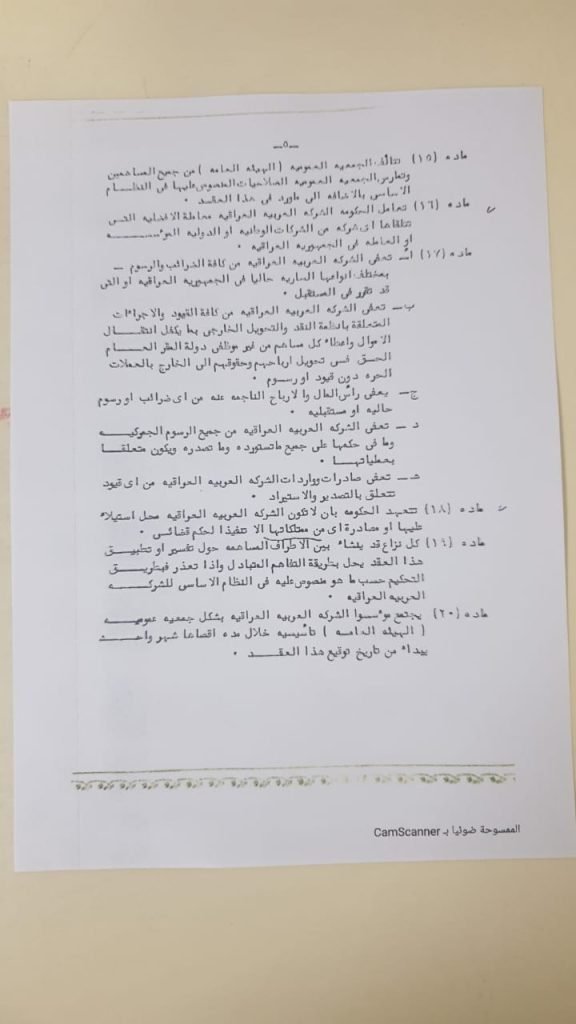 ـ٥ـ
ماده (١٥) تتألف الجمعيه العموميه ( الهيئه العامه ) من جميع المساهمين
وتمارس الجمعيه العموميه الصلاحيات المنصوص عليها فى النظـــام
الاساسى بالاضافه الى ماورد فى هذا العقـــد .
ماده (١٦) تعامل الحكومه الشركه العربيه العراقيه معاملة الافضليه التـى
تتلقاها اى شركه من الشركات الوطنيه او الدوليه
او العامله فى الجمهوريه العراقيه .
ماده (١٧) أـ تعفى الشركه العربيه العراقيه من كافة الضرائب والرسوم ــ
بمختلف انواعها الساريه حاليا فى الجمهوريه العراقيه او التى
قد تتقرر فى المستقبل .
ب ـ تعفى الشركه العربيه العراقيه من كافة القيود والاجراءات
المتعلقة بانظمة النقد والتحويل الخارجى بما يكفل انتقـــال
الاموال واعطاء كل مساهم من غير موظفى دولة المقر العـــام
الحـق فـى تحويل ارباحهم وحقوقهم الى الخارج بالعملات
الحره دون قيود او رسـوم .
ج ـ يعفى رأس المال والارباح الناجمه عنه من اى ضرائب او رسوم
حاليه او مستقبليه .
د ـ تعفى الشركه العربيه العراقيه من جميع الرسوم الجمركيـه
وما فى حكمها على جميع ماتستورده وما تصدره ويكون متعلقـا
بعملياتهـــا .
هـ ـ تعفى صادرات وواردات الشركه العربيه العراقيه من اى قيود
تتعلق بالتصدير والاستيراد .
ماده (١٨) تتعهد الحكومه بان لاتكون الشركه العربيه العراقيه محل استيلاء
عليها او مصادرة اى من ممتلكاتها الا تنفيذا لحكم قضائـى .
ماده (١٩) كل نزاع قد ينشاء بين الاطراف المساهمه حول تفسير او تطبيـق
هذا العقد يحل بطريقة التفاهم المتبادل واذا تعذر فبطريـــق
التحكيم حسب ما هو منصوص عليه فى النظام الاساسى للشركـــه
العربيه العراقيه .
ماده (٢٠) يجتمع مؤسسوا الشركه العربيه العراقيه بشكل جمعيه عموميـــه
( الهيئه العامـه ) تأسيسيه خلال مده اقصاها شهر واحـــد
يبداء من تاريخ توقيع هذا العقـــد .
الممسوحة ضوئيا بـ CamScanner